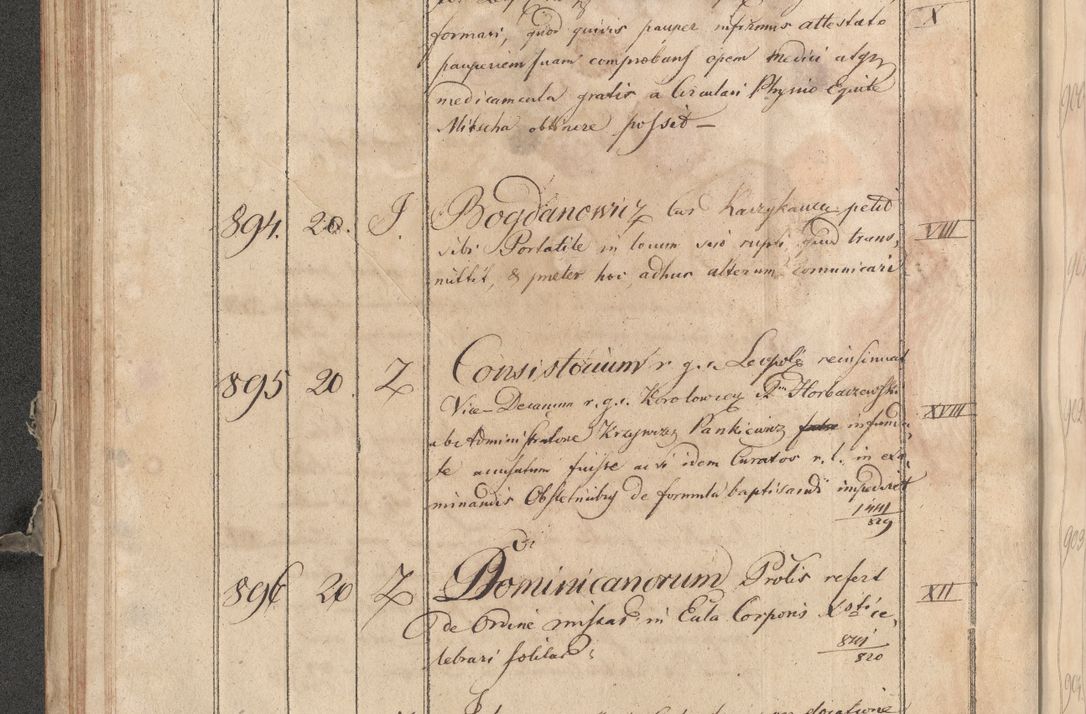 formari, quod quivis pauper infirmus attestato
pauperiem suam comprobans opem medici atque
medicamenta gratis a Circulari Physico Equite
Mitscha obtinere possit —
X
894. 20. J. Bogdanowicz petit
sibi Portatile in locum suo rupti, quod trans,
mittit, & praeter hoc adhuc alterum comunicari
VIII
895 20 Z Consistorium r. g. c. Leopol: reinsinuat
Vice-Decanum r. g. c. Horbaczewski
ab Administratore Krzywczy Pankiewicz infunda,
te accusatum fuisse acsi idem Curatos r. l. in exa,
minandis Obstetricibus de formula baptisandi impediret
XVIII
1441/829
896 20 Z Dominicanorum Prolis refert
de Ordine missas in Ecla Corporis Xsti ce,
lebrari solitas:
XII
841/820